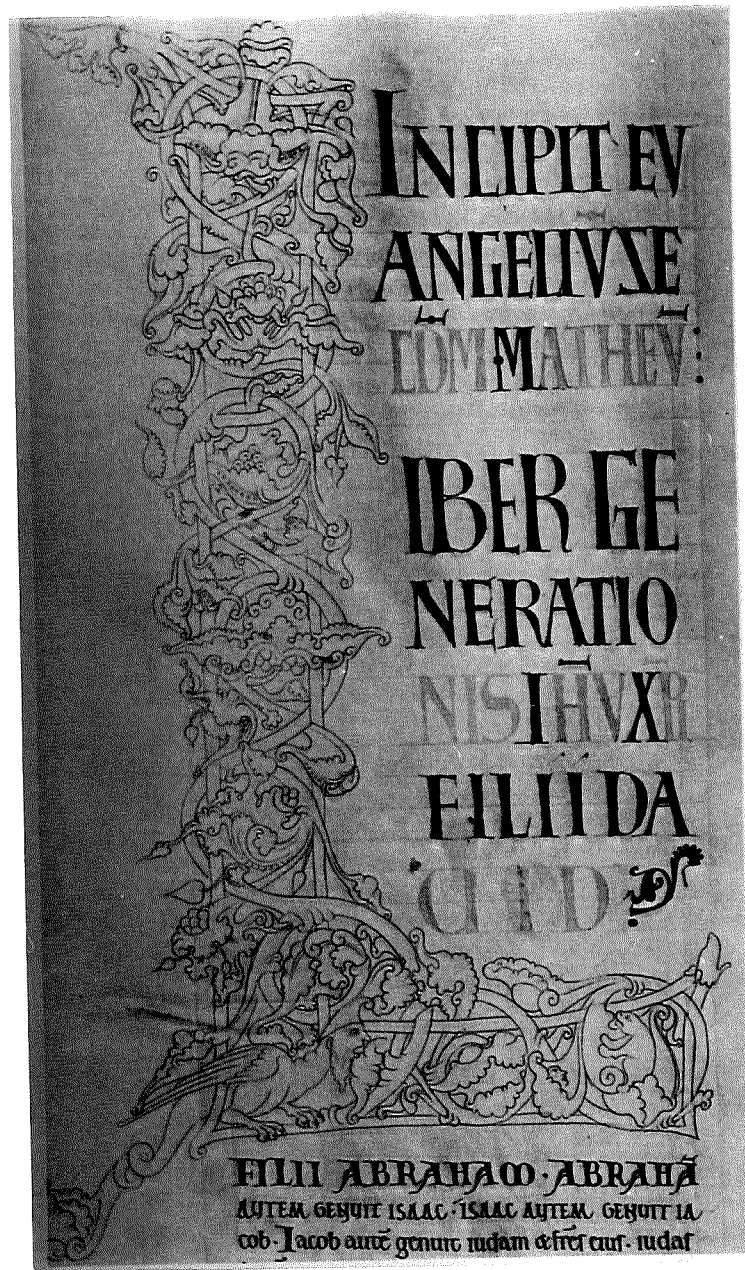 INCIPIT EV
ANGELIV̄ SE
CD̄M·MATHEV̄:
LIBER GE
NERATIO
NIS IHV̄ XR̄
FILII DA
FILII ABRAHAM · ABRAHĀ
AUTEM GENUIT ISAAC · ISAAC AUTEM GENUIT IA
cob · Iacob autē genuit iudam & fr̄es eius · iudas